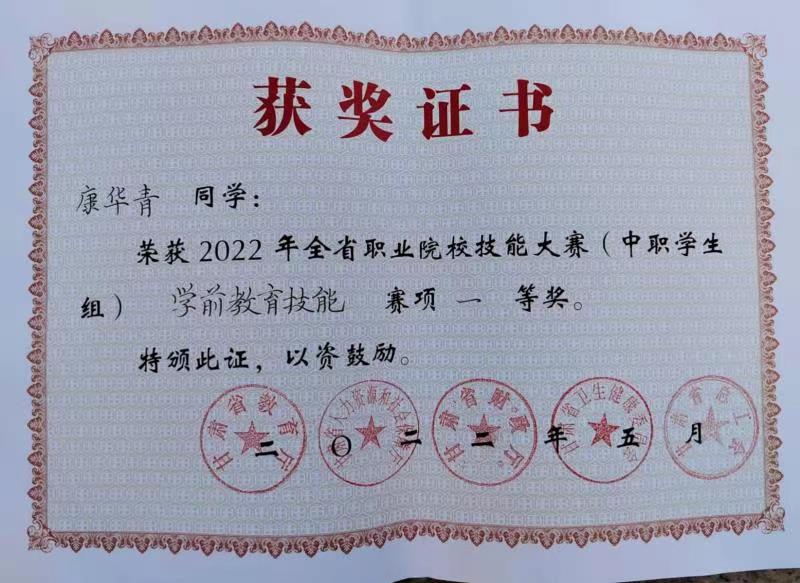 获奖证书
康华青 同学：
荣获2022年全省职业院校技能大赛（中职学生
组） 学前教育技能 赛项 一 等奖。
特颁此证，以资鼓励。
甘肃省教育厅
甘肃省人力资源和社会保障厅
甘肃省财政厅
甘肃省卫生健康委员会
甘肃省总工会
二〇二二年五月